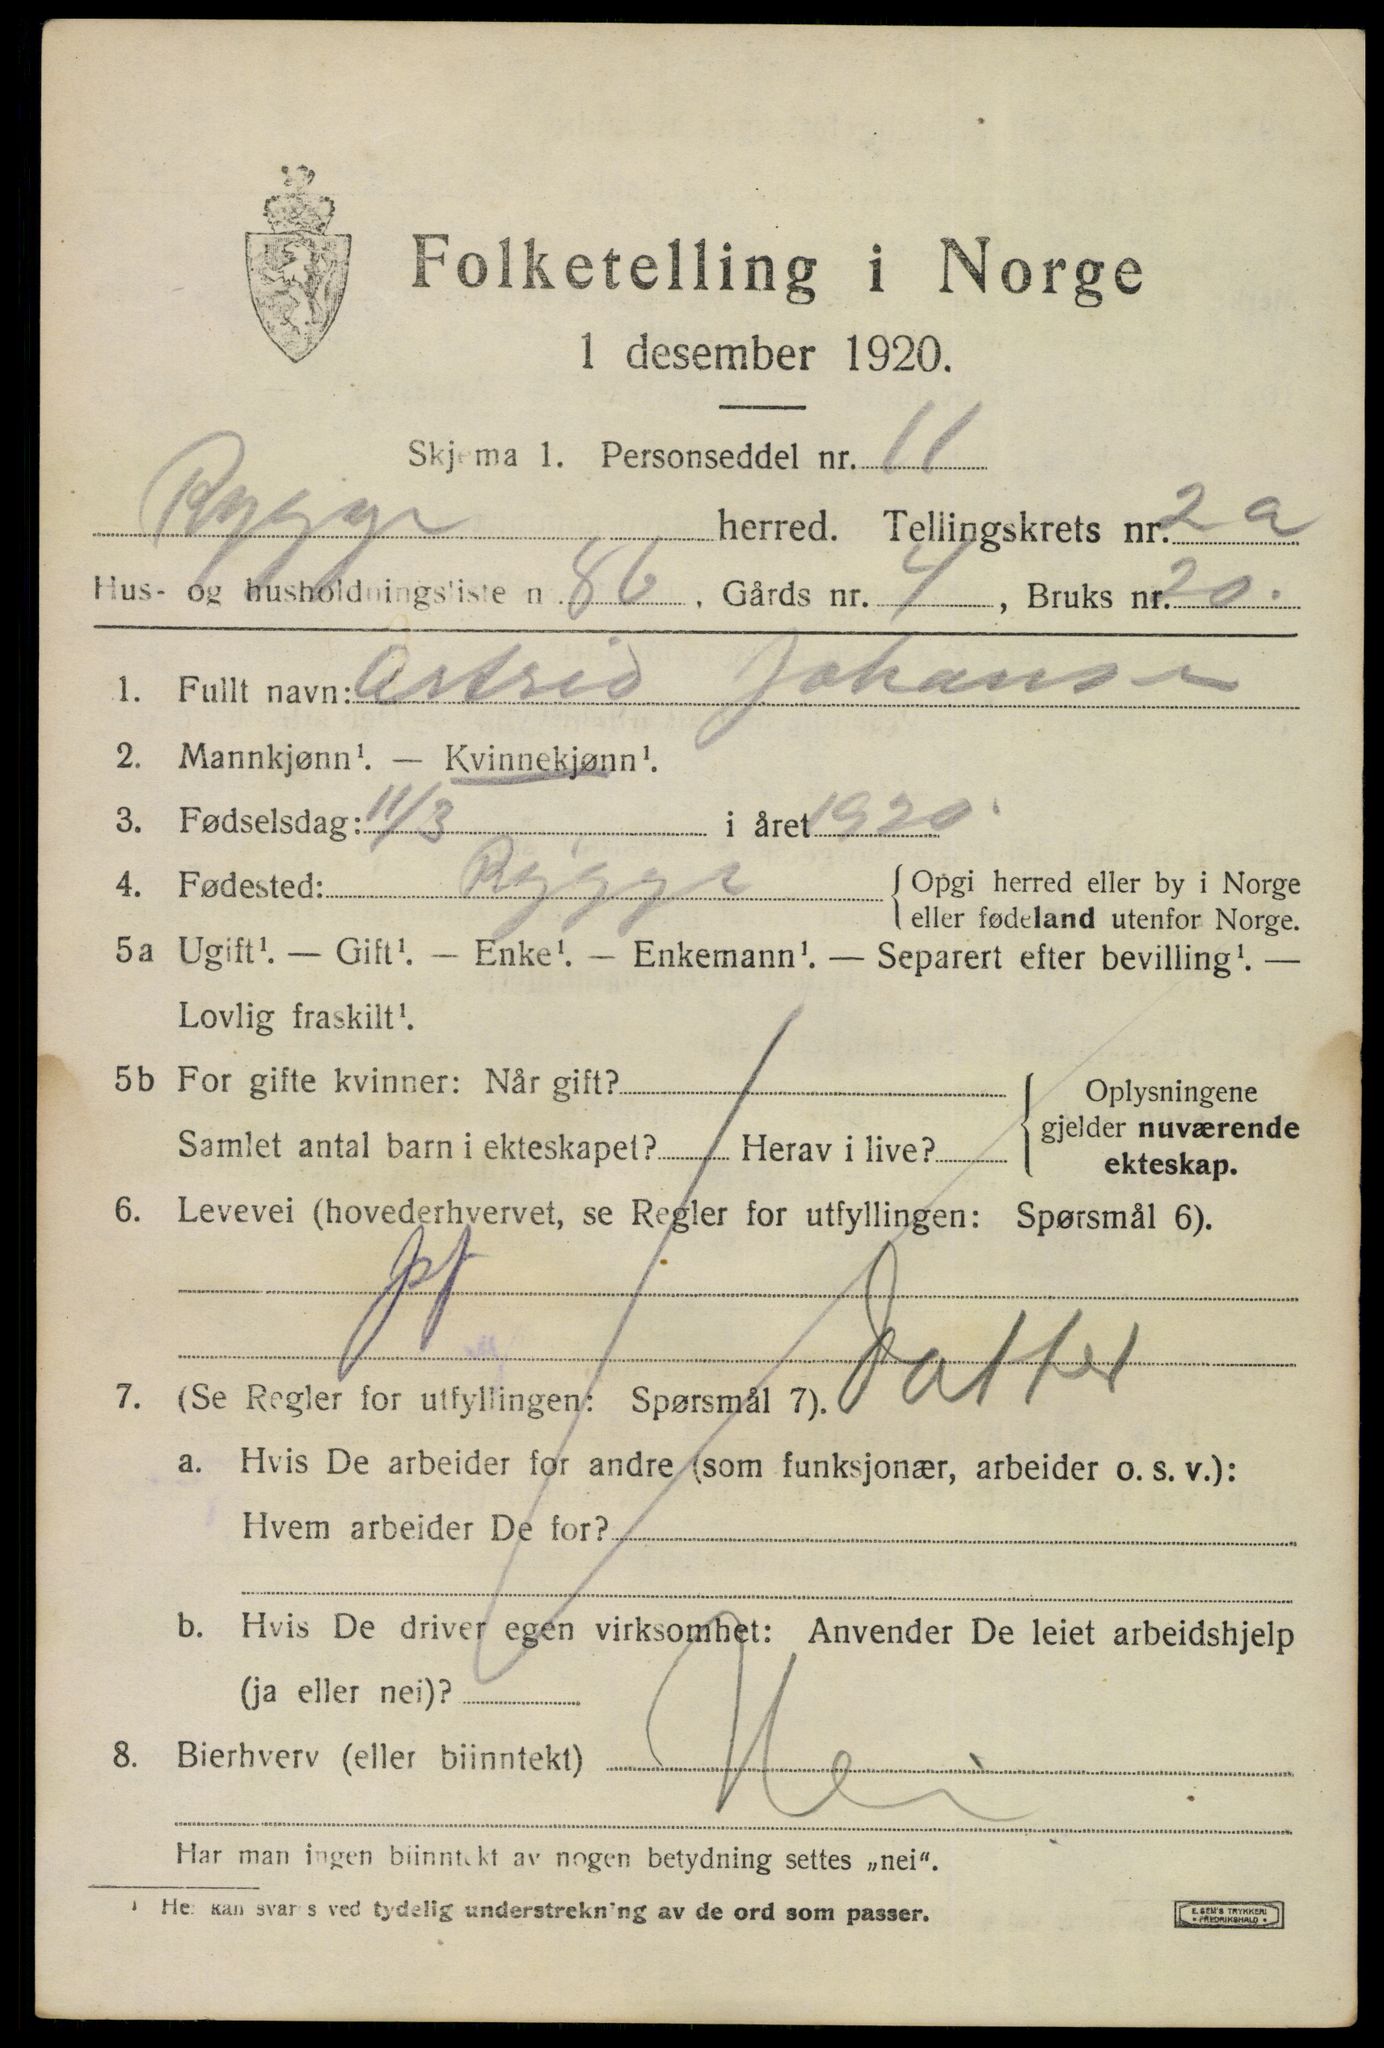 Folketelling i Norge
1 desember 1920.
Skjema 1. Personseddel nr. 11
Rygge herred. Tellingskrets nr. 2 a
Hus- og husholdningsliste n 86, Gårds nr. 4, Bruks nr. 20.
1. Fullt navn: Astrid Johansen
2. Mannkjønn¹. — Kvinnekjønn¹.
3. Fødselsdag: 11/3 i året 1920.
4. Fødested: Rygge { Opgi herred eller by i Norge
eller fødeland utenfor Norge.
5a Ugift¹. — Gift¹. — Enke¹. — Enkemann¹. — Separert efter bevilling¹. —
Lovlig fraskilt¹.
5b For gifte kvinner: Når gift? { Oplysningene
gjelder nuværende
Samlet antal barn i ekteskapet? Herav i live? ekteskap.
6. Levevei (hovederhvervet, se Regler for utfyllingen: Spørsmål 6).
Datter
7. (Se Regler for utfyllingen: Spørsmål 7).
a. Hvis De arbeider for andre (som funksjonær, arbeider o. s. v.):
Hvem arbeider De for?
b. Hvis De driver egen virksomhet: Anvender De leiet arbeidshjelp
(ja eller nei)?
8. Bierhverv (eller biinntekt) Nei
Har man ingen biinntekt av nogen betydning settes „nei“.
¹ Her kan svares ved tydelig understrekning av de ord som passer.
E. SEM'S TRYKKERI
• FREDRIKSHALD •